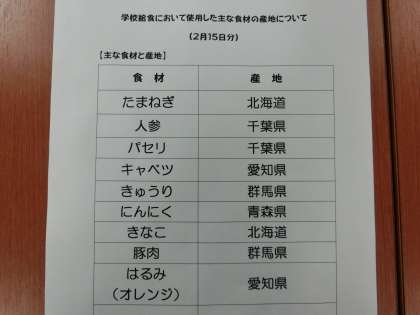 学校給食において使用した主な食材の産地について
(2月15日分)
【主な食材と産地】
食材 産地
たまねぎ 北海道
人参 千葉県
パセリ 千葉県
キャベツ 愛知県
きゅうり 群馬県
にんにく 青森県
きなこ 北海道
豚肉 群馬県
はるみ
(オレンジ) 愛知県